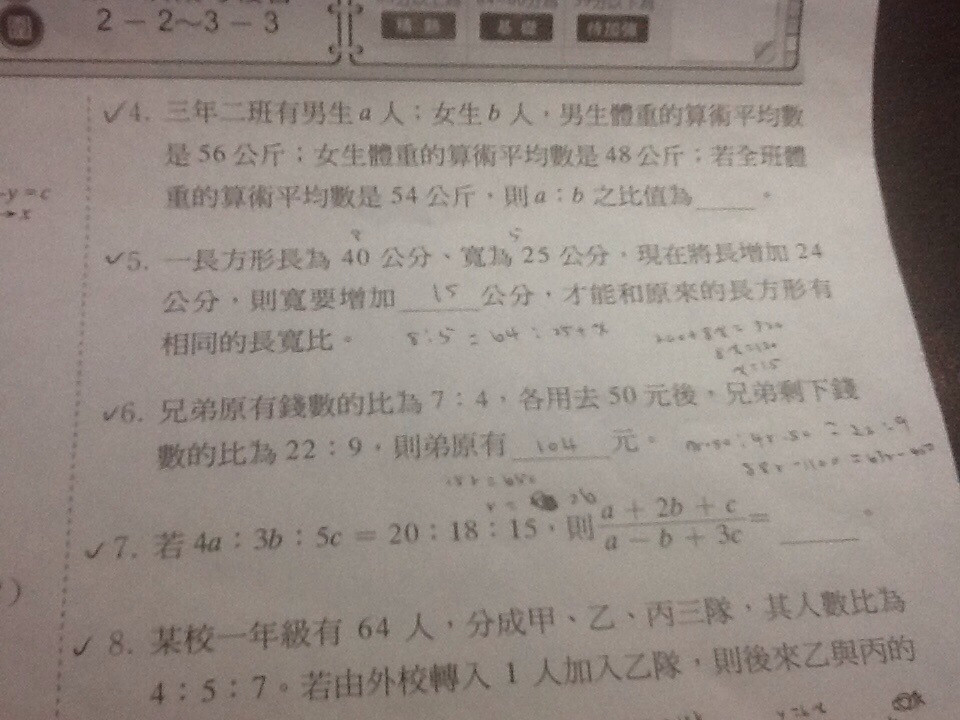 2－2～3－3
精熟 基礎 待加強
-y = c
→ x
✓4. 三年二班有男生 a 人；女生 b 人，男生體重的算術平均數
是 56 公斤；女生體重的算術平均數是 48 公斤；若全班體
重的算術平均數是 54 公斤，則 a：b 之比值為____。
8 5
✓5. 一長方形長為 40 公分、寬為 25 公分，現在將長增加 24
公分，則寬要增加 15 公分，才能和原來的長方形有
相同的長寬比。 8:5 = 64:25+x 200+8x=320
8x=120
x=15
✓6. 兄弟原有錢數的比為 7：4，各用去 50 元後，兄弟剩下錢
數的比為 22：9，則弟原有 104 元。 7r-50:4r-50=22:9
✓7. 若 4a：3b：5c = 20：18：15，則 a + 2b + c / a - b + 3c = ____。
✓8. 某校一年級有 64 人，分成甲、乙、丙三隊，其人數比為
4：5：7。若由外校轉入 1 人加入乙隊，則後來乙與丙的